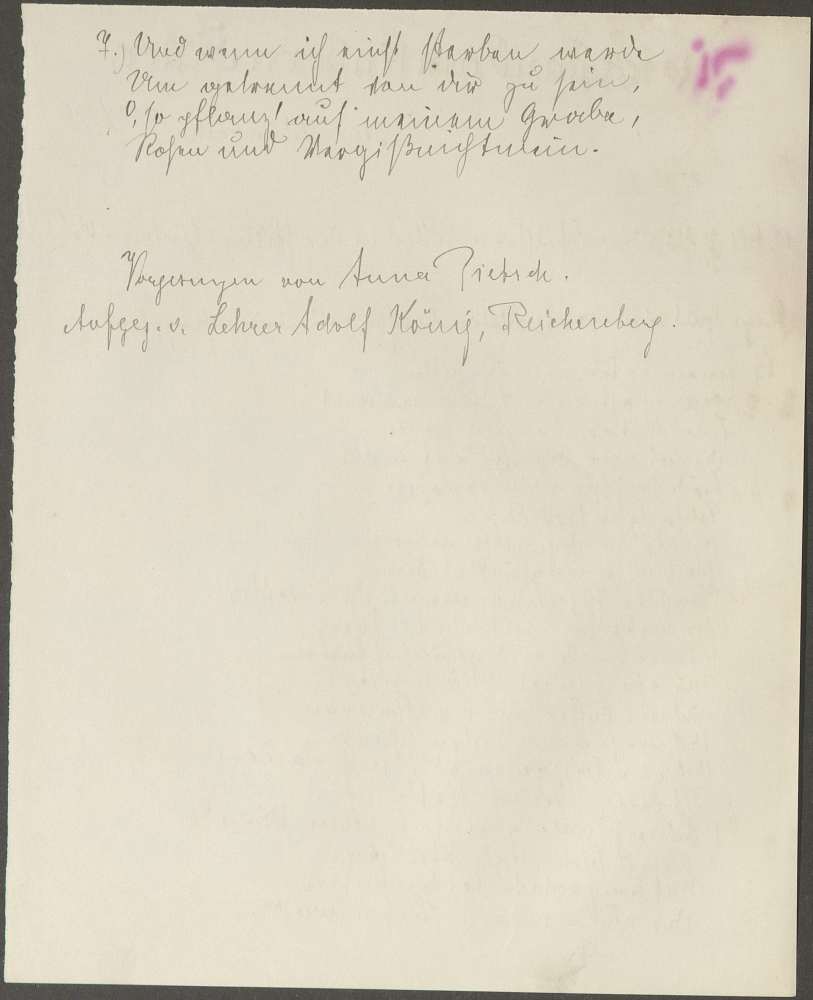 7.) Und wenn ich einst sterben werde
Um getrennt von dir zu sein,
O, so pflanz' auf meinem Grabe,
Rosen und Vergißnichtmein.
Vorgesungen von Anna Pietsch.
Aufgez. v. Lehrer Adolf König, Reichenberg.